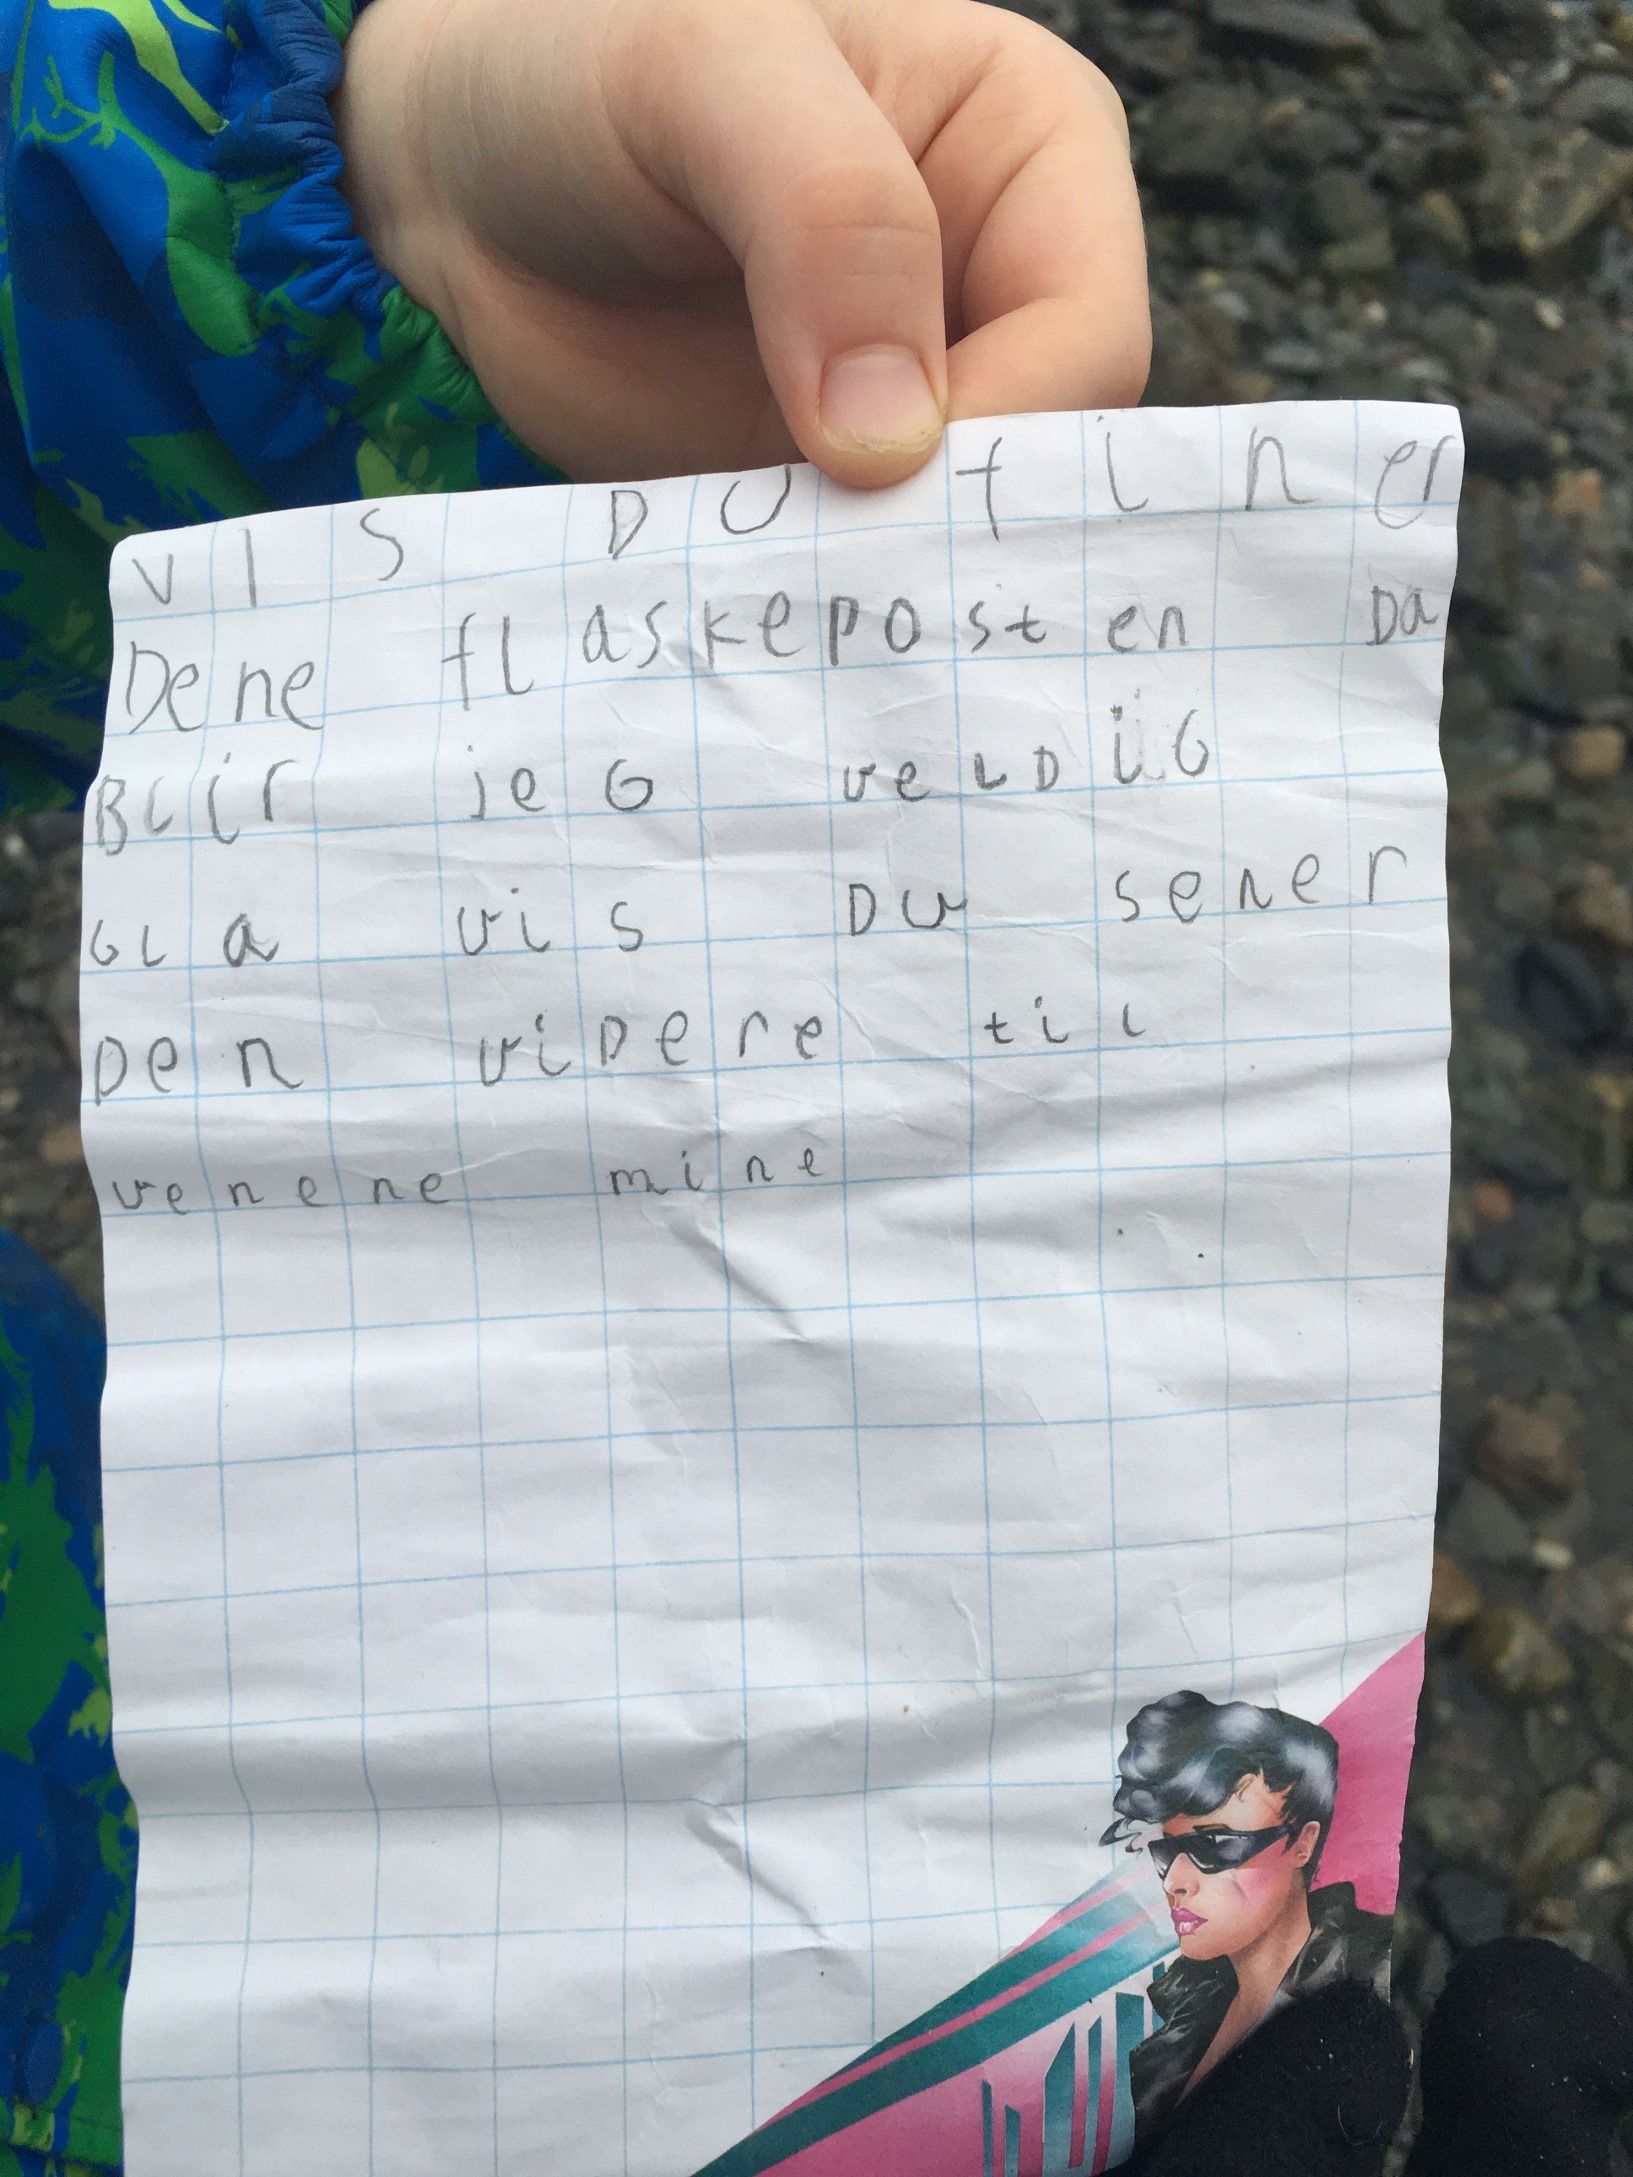 VIS DU finer
Dene flaskeposten Da
Blir jeG veLDiG
GLa vis Du sener
Den viDere til
venene mine